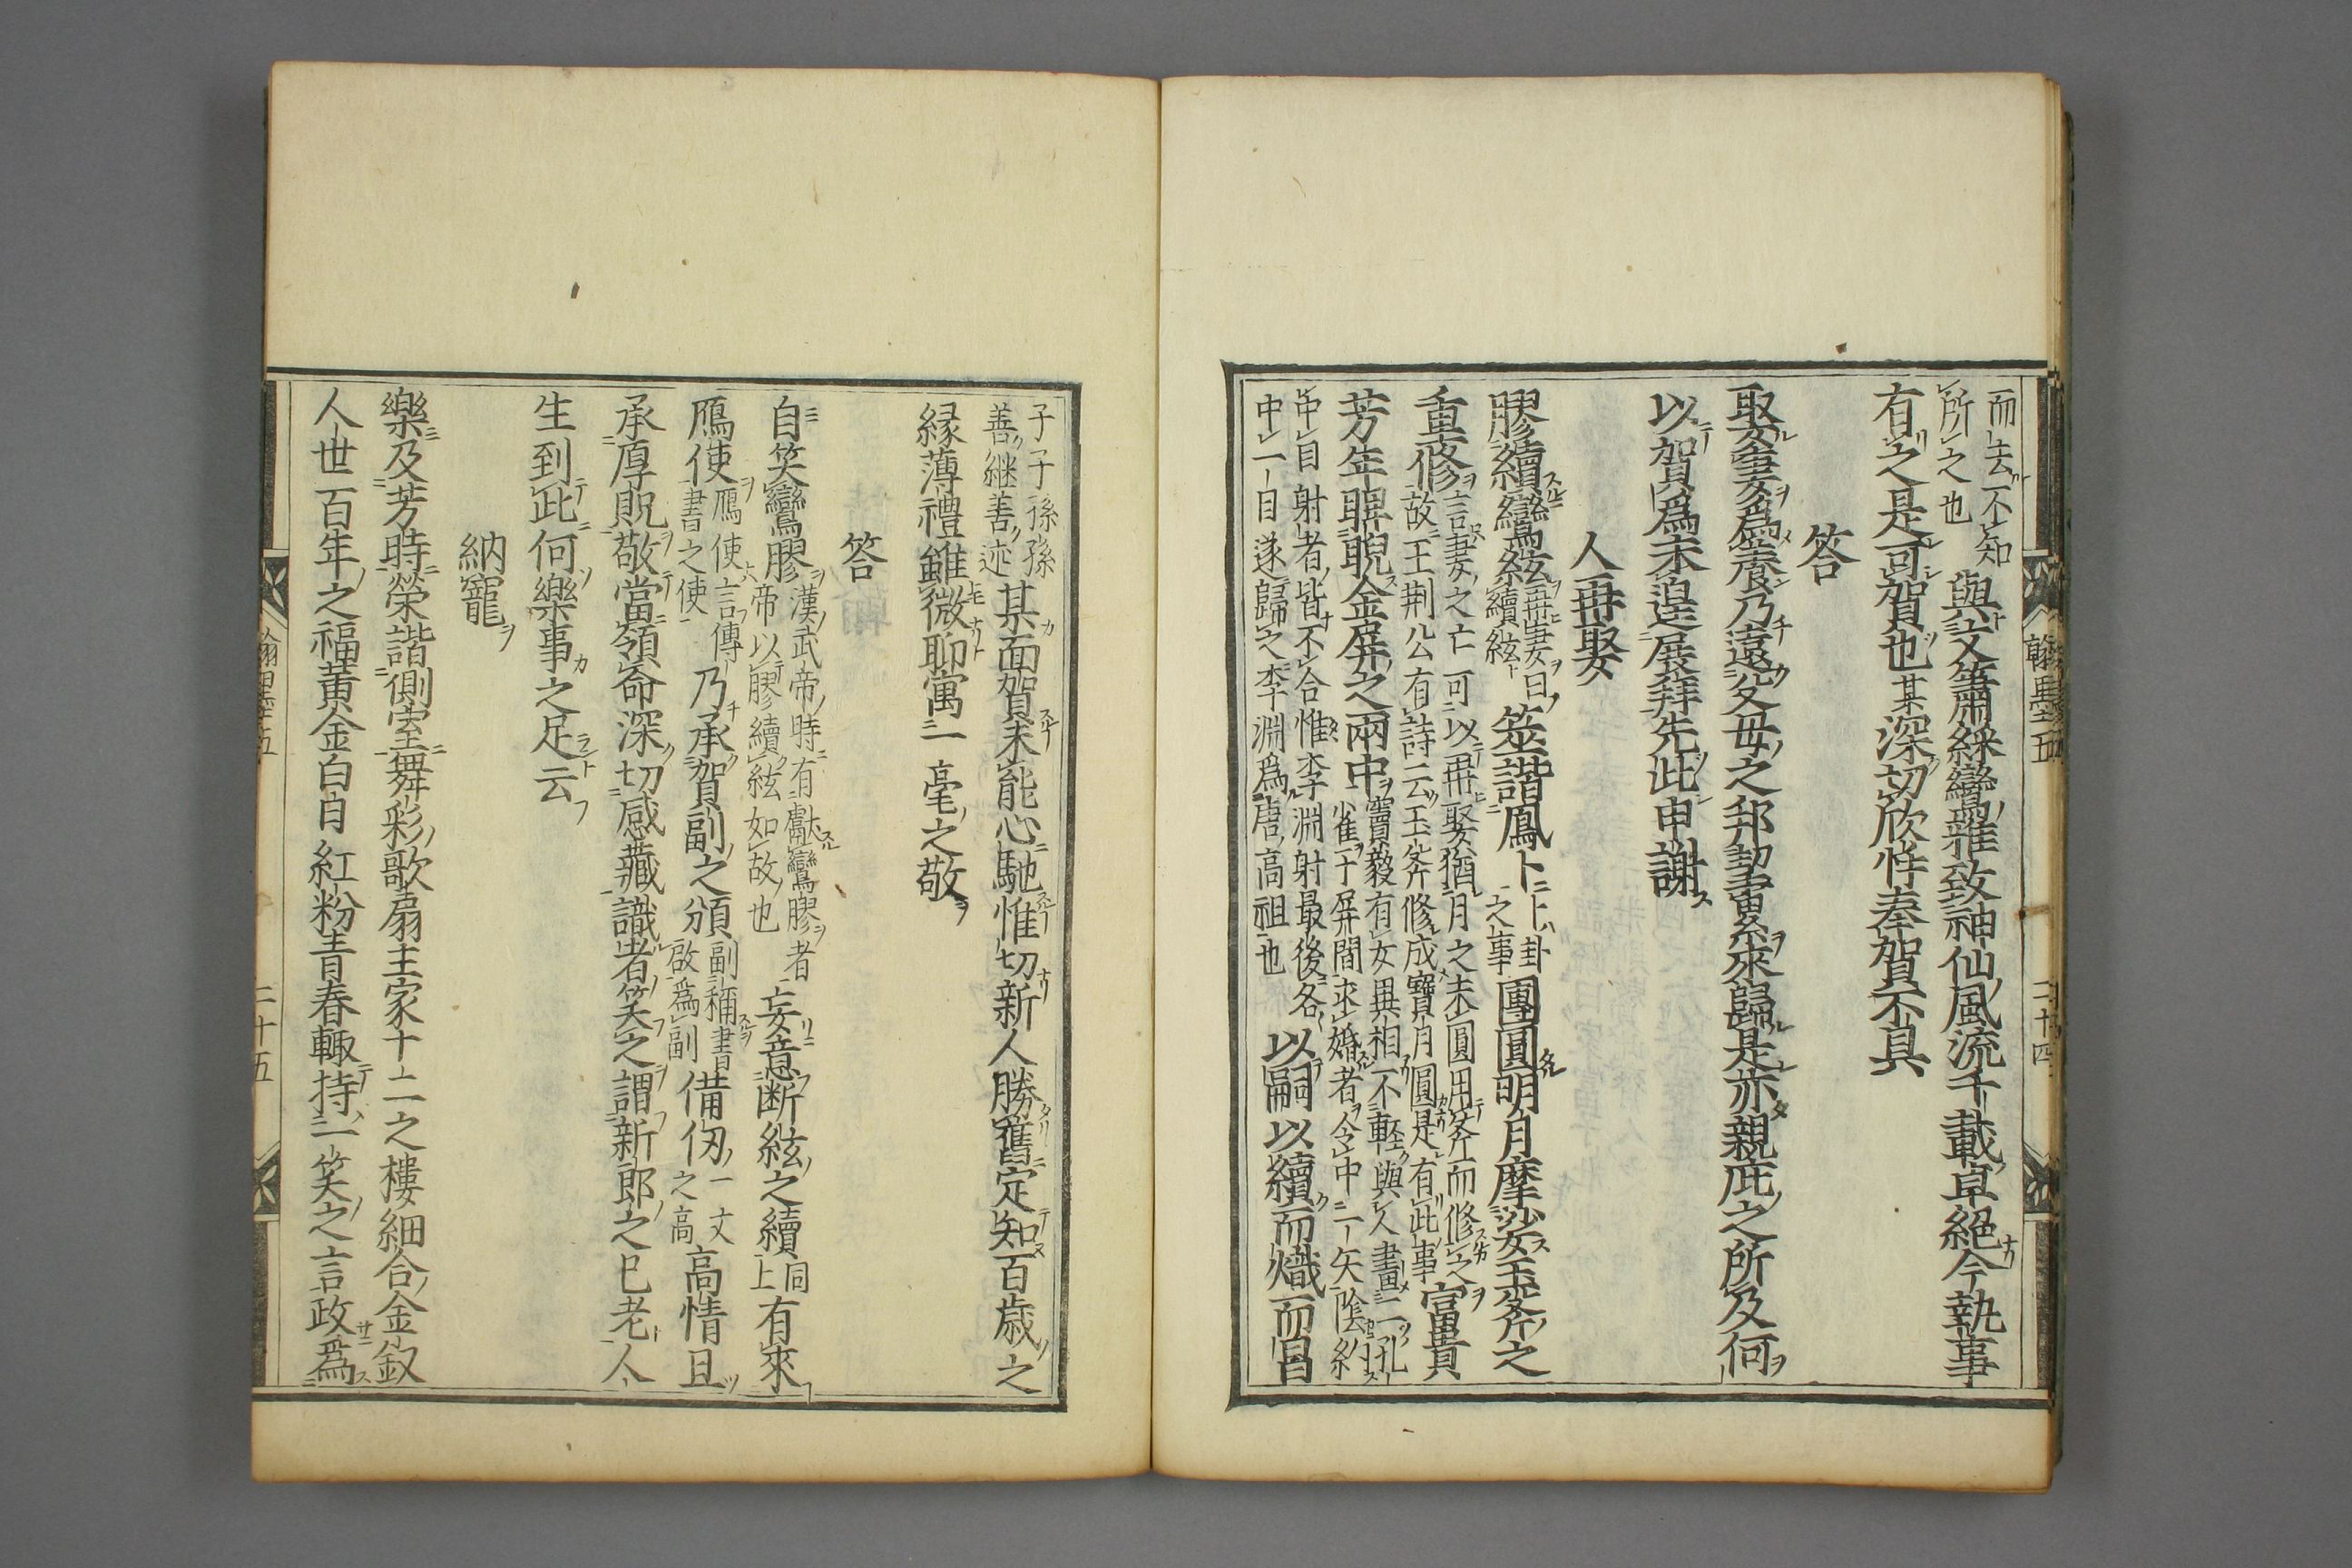 而去不知
所之也
與文簫綵鸞雅致神仙風流千載卓絕今執事
有之是可賀也某深切欣忭奉賀不具
答
娶妻爲養乃遠父母之邦契宙系來歸是亦親庇之所及何
以賀爲未遑展拜先此申謝
人再娶
膠續鸞絃
再娶曰
續絃
筮諧鳳卜
卜卦
之事
團圓明月摩娑玉斧之
重修
言妻之亡可以再娶猶月之未圓用斧而修之
故王荆公有詩云玉斧修成寶月圓是有此事
富貴
芳年聘睨金屏之兩中
竇毅有女異相不輕與人畫二孔
雀于屏間求婚者令中二矢陰約
中目射者皆不合惟李淵射最後各
中一目遂歸之李淵爲唐高祖也
以嗣以續而熾而昌
翰墨五
二十四
子子孫孫
善繼善述
某面賀未能心馳惟切新人勝舊定知百歲之
緣薄禮雖微聊寓一毫之敬
答
自笑鸞膠
漢武帝時有獻鸞膠者
帝以膠續絃如故也
妄意断絃之續
同
上
有來
鴈使
鴈使言傳
書之使
乃承賀副之頒
副稱書
啟爲副
備仞
一丈
之高
高情且
承厚貺敬當領命深切感藏識者笑之謂新郎之已老人
生到此何樂事之足云
納寵
樂及芳時榮諧側室舞彩歌扇主家十二之樓細合金釵
人世百年之福黃金白日紅粉青春輙持一笑之言政爲
翰墨五
二十五